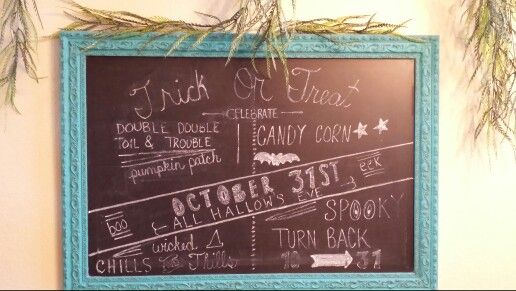 Trick Or Treat
CELEBRATE
DOUBLE DOUBLE
TOIL & TROUBLE
pumpkin patch
CANDY CORN
eek
OCTOBER 31ST
ALL HALLOWS EVE
boo
SPOOKY
wicked
CHILLS Thrills
TURN BACK
10 31